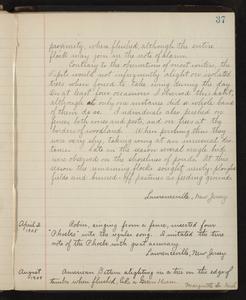 37
proximity, when flushed, although the entire
flock may join in the note of alarm.
Contrary to the observations of most writers, the
Pipits would not infrequently alight on isolated
trees when forced to take wing during the day.
On at least four occasions I observed this habit,
although in only one instance did a whole band
of them do so. Individuals also perched on
fences, both wire and post, and on trees at the
borders of woodland. When perching thus they
was very shy, taking wing at an unusual dis-
tance. Late in the season small
were observed on the shoreline of ponds. At this
season the remaining flocks sought newly-ploughed
fields and burned-off as feeding ground.
Lawrenceville, New Jersey
April 2 1908
Robin, singing from a fence, inserted four
"Phoebes" into the regular song. It imitated the true
note of the Phoebe with great accuracy.
Lawrenceville, New Jersey.
August 1908
American Bittern alighting in a tree on the edge of
timber when flushed, like a Green Heron.